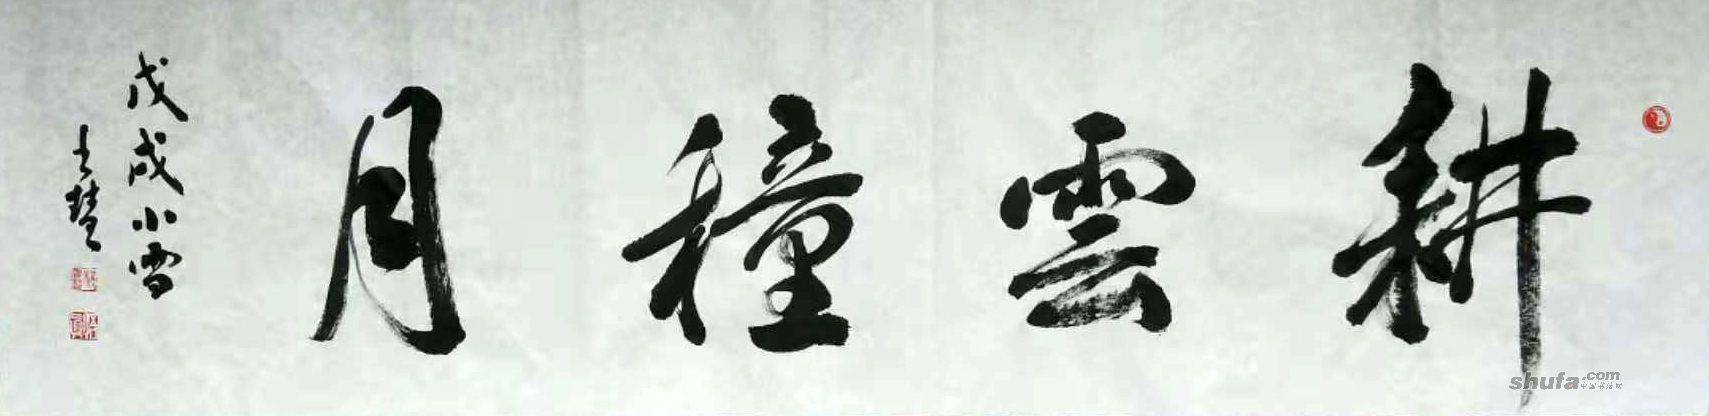 耕雲穜月
戊戌小雪
shufa.com